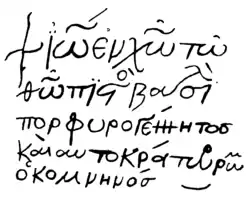 + ϊω̃ εν χω̃ τω
θω̃ πιϛο βασι
πορφυρογέννητος
και αυτοκράτωρ ρω̃
ο κομνηνος